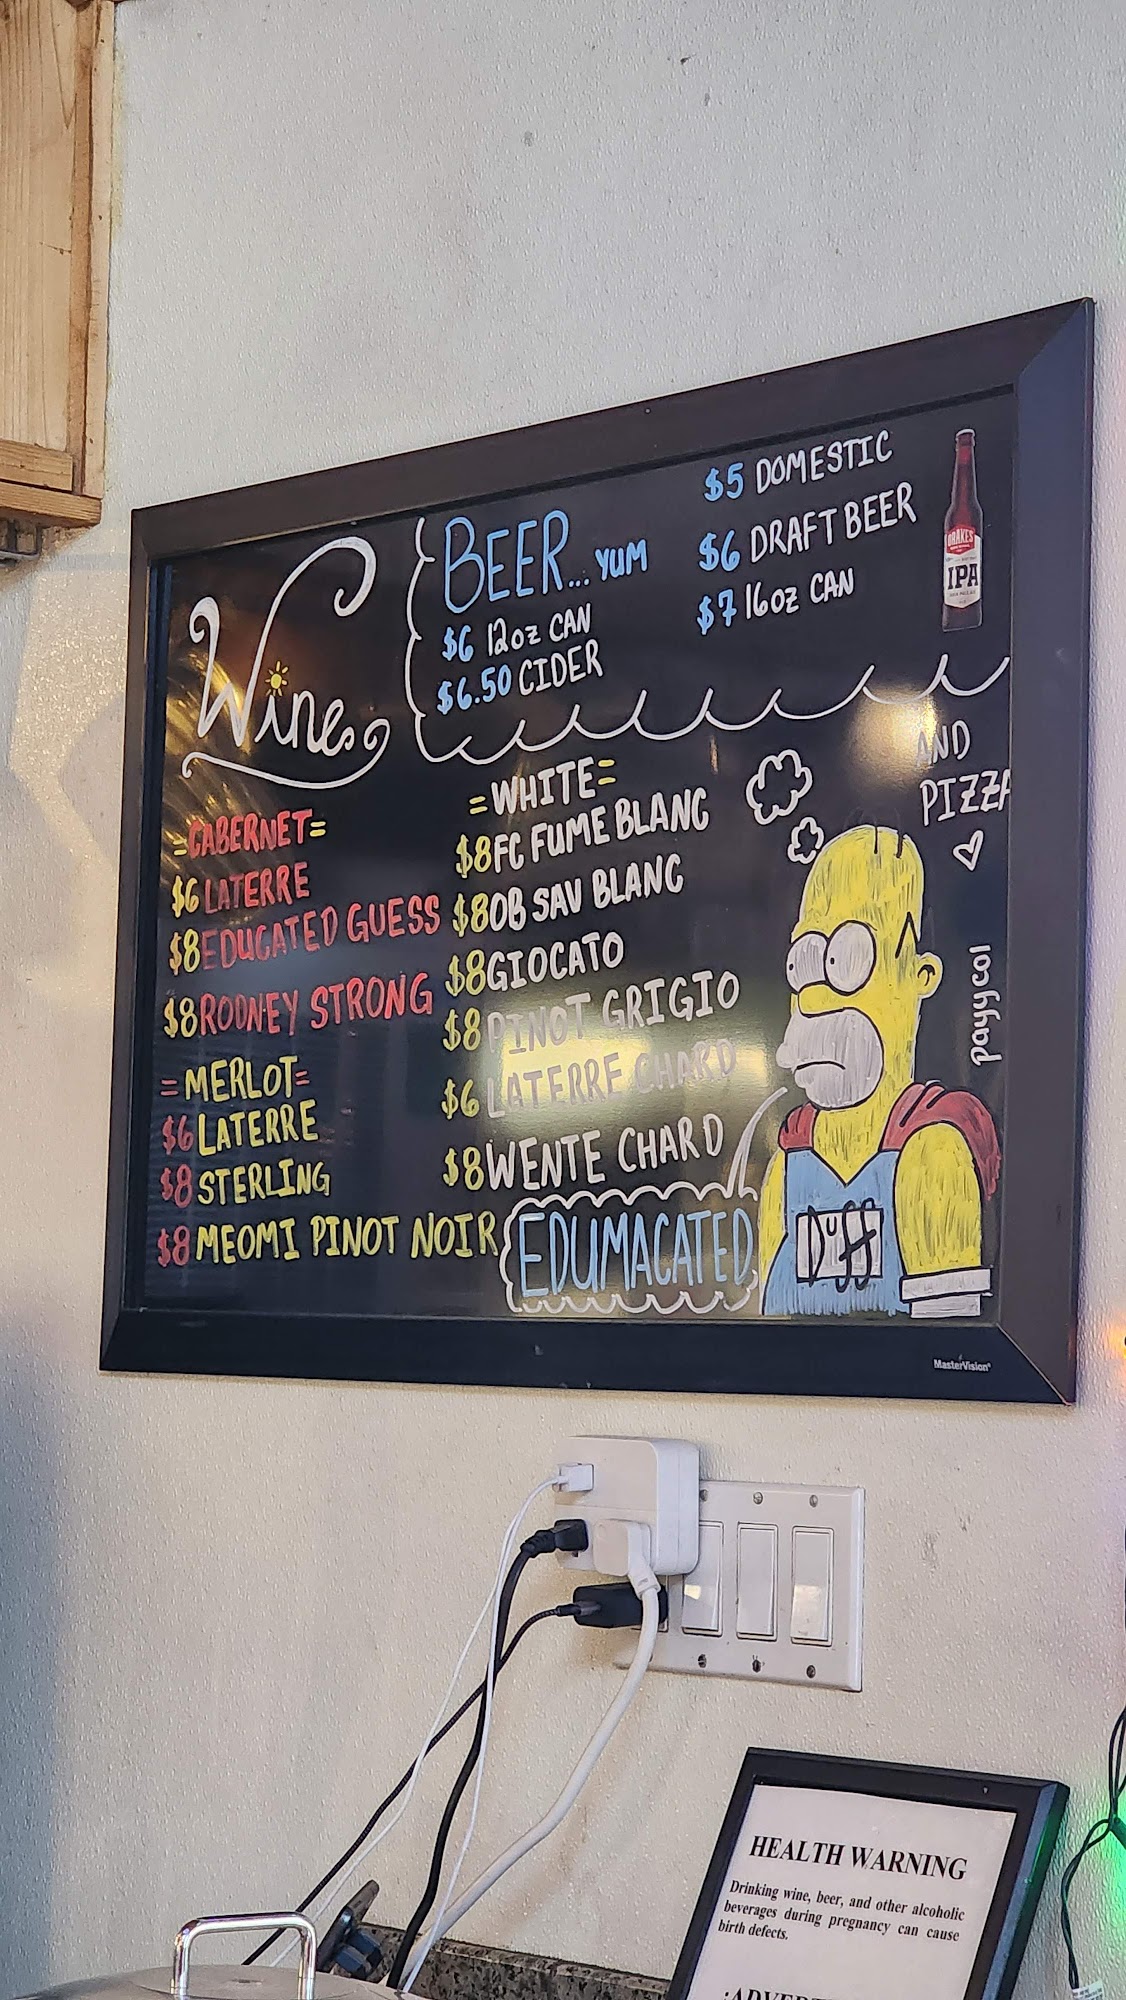 Wine
BEER... YUM
$6 12oz CAN
$6.50 CIDER
$5 DOMESTIC
$6 DRAFT BEER
$7 16oz CAN
DRAKE'S
IPA
AND
PIZZA
=CABERNET=
$6 LATERRE
$8 EDUCATED GUESS
$8 RODNEY STRONG
=MERLOT=
$6 LATERRE
$8 STERLING
$8 MEOMI PINOT NOIR
=WHITE=
$8 FC FUME BLANC
$8 OB SAV BLANC
$8 GIOCATO
$8 PINOT GRIGIO
$6 LATERRE CHARD
$8 WENTE CHARD
EDUMACATED
Duff
payycol
MasterVision
HEALTH WARNING
Drinking wine, beer, and other alcoholic
beverages during pregnancy can cause
birth defects.